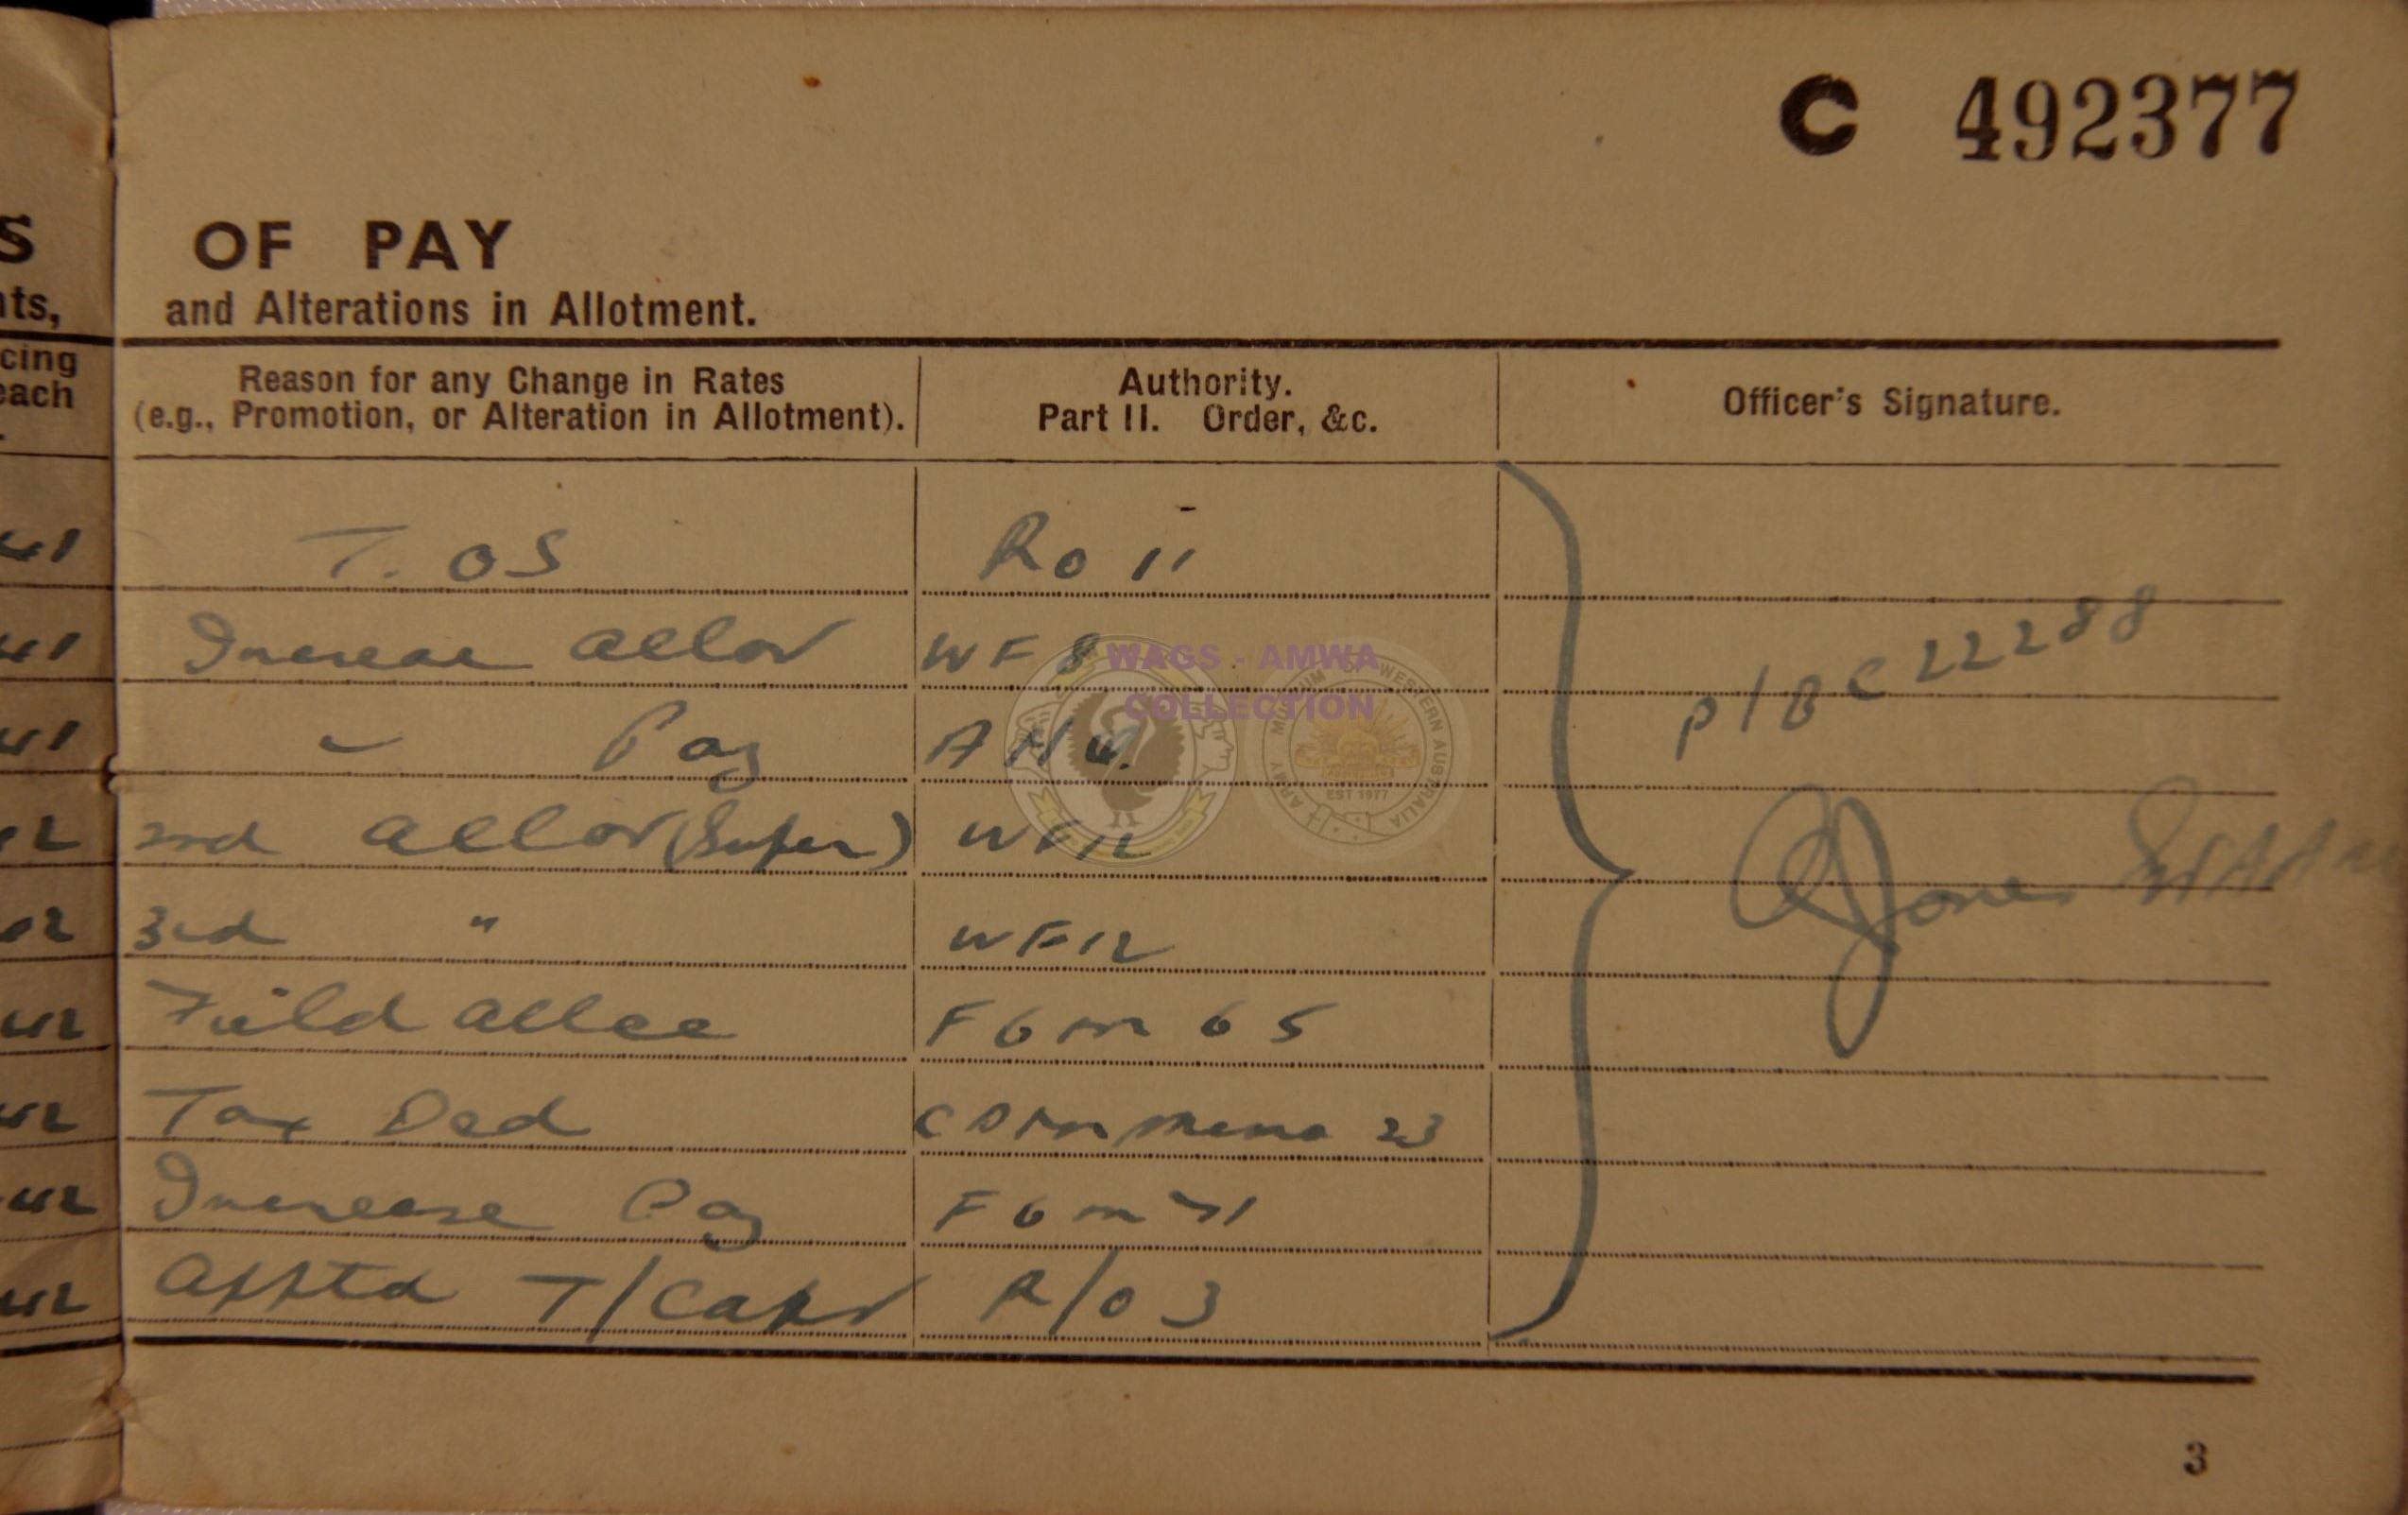 C 492377
S OF PAY
nts, and Alterations in Allotment.
cing
each
Reason for any Change in Rates
(e.g., Promotion, or Alteration in Allotment).
Authority.
Part II. Order, &c.
Officer's Signature.
41 T. OS Ro 11
41 Increase allot WF 8
41 " Pay AHQ.
42 2nd allot (Super) WF12
42 3rd " WF12
42 Field allce F6m 65
42 Tax Ded memo 23
42 Increase Pay F6m 71
42 Apptd T/Capt R/O 3
P/BC 22288
Jones
WAGS - AMWA
COLLECTION
ARMY MUSEUM OF WESTERN AUSTRALIA
EST 1977
3